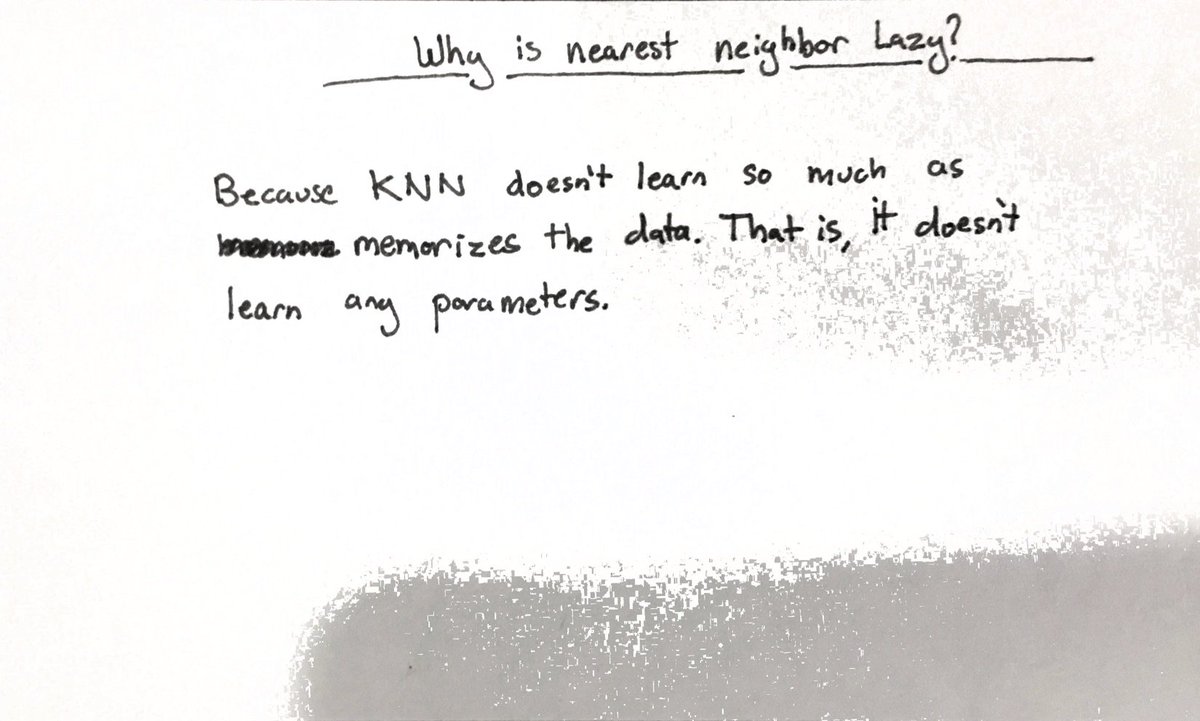 Why is nearest neighbor Lazy?
Because KNN doesn't learn so much as
memorizes the data. That is, it doesn't
learn any parameters.